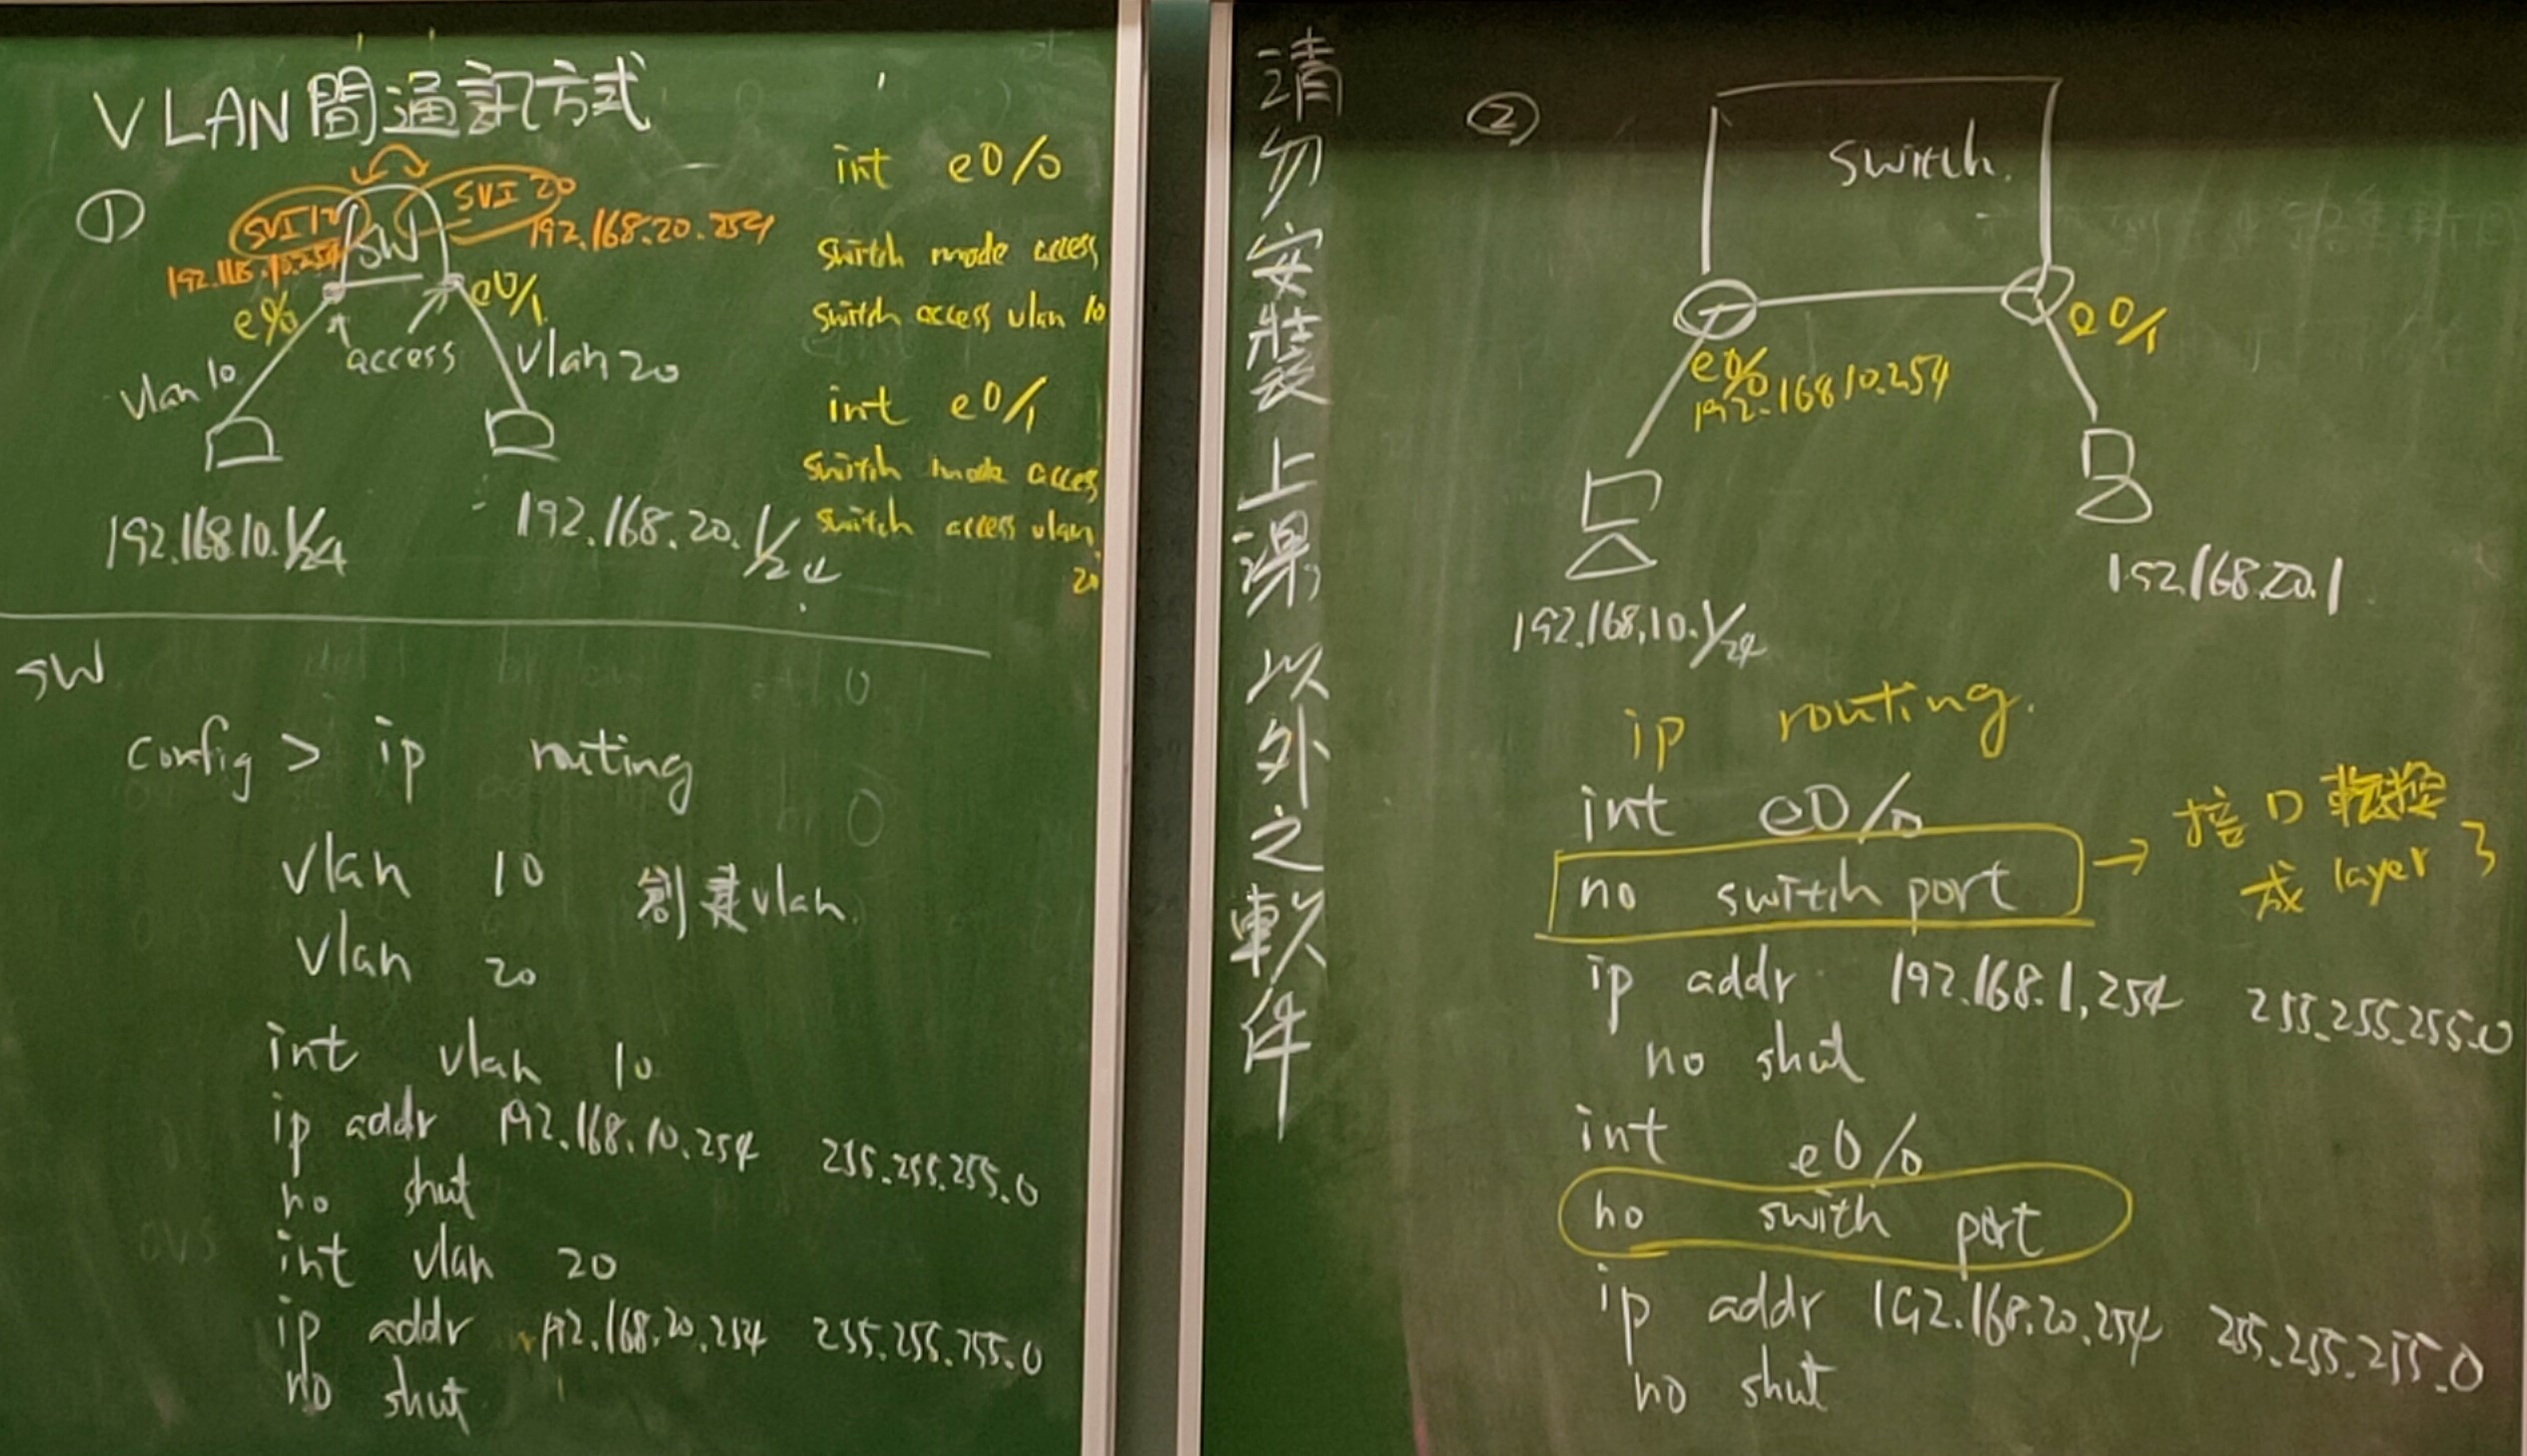 VLAN間通訊方式
①
SVI 20
192.168.20.254
SW
e0/0
e0/1
access
vlan 10
vlan 20
192.168.10.1/24
192.168.20.1/24
int e0/0
switch mode access
switch access vlan 10
int e0/1
switch mode acces
switch access vlan
20
SW
config > ip routing
vlan 10 創建vlan
vlan 20
int vlan 10
ip addr 192.168.10.254 255.255.255.0
no shut
int vlan 20
ip addr 192.168.20.254 255.255.255.0
no shut
請勿安裝上課以外之軟件
②
switch.
e0/0
192.168 10.254
e0/1
192.168.10.1/24
192.168.20.1
ip routing.
int e0/0
no switch port → 接口轉換
成 layer 3
ip addr 192.168.1.254 255.255.255.0
no shut
int e0/0
no swith port
ip addr 192.168.20.254 255.255.255.0
no shut